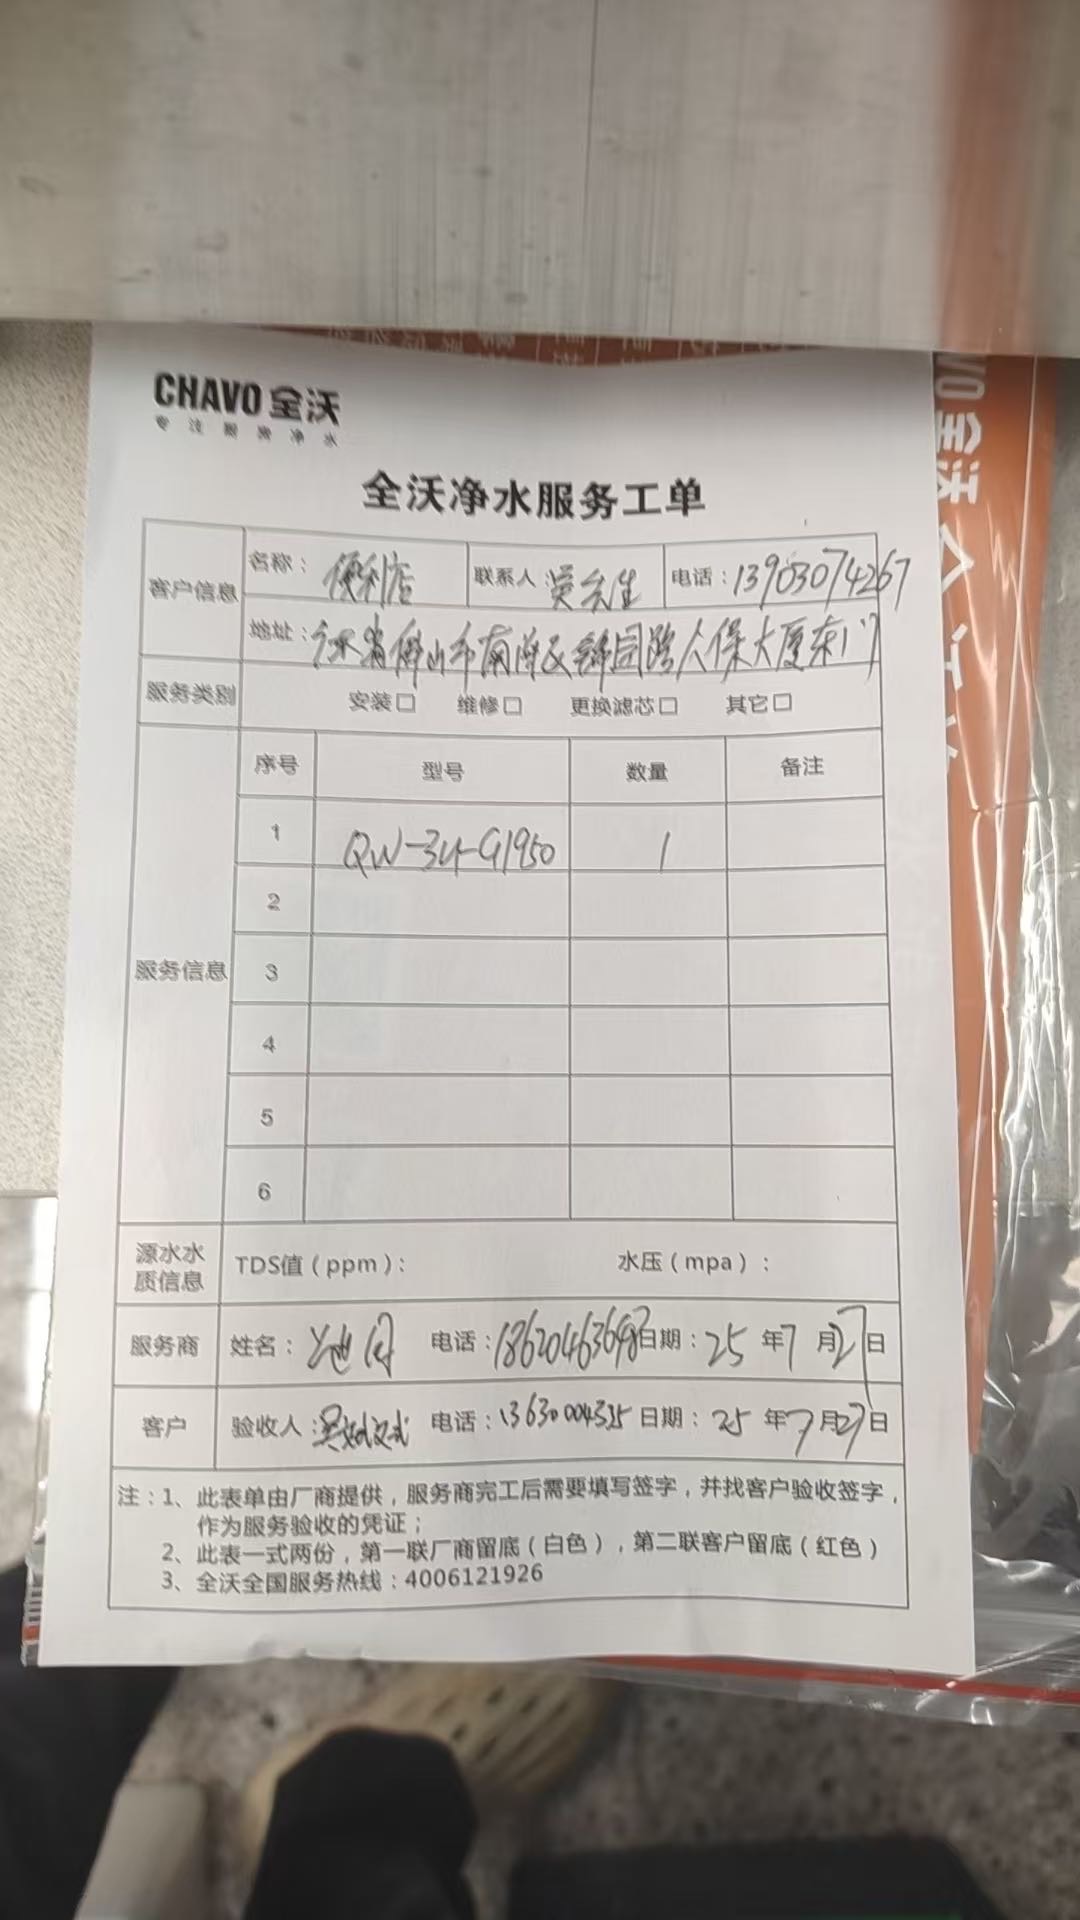 CHAVO 全沃
专注厨房净水
全沃净水服务工单
客户信息 名称：便利店 联系人：吴先生 电话：13903074267
地址：广东省佛山市南海区 园路人保大厦东门
服务类别 安装□ 维修□ 更换滤芯□ 其它□
服务信息 序号 型号 数量 备注
1 QW-3U-G1950 1
2
3
4
5
6
源水水质信息 TDS值（ppm）： 水压（mpa）：
服务商 姓名： 电话： 日期：25年7月27日
客户 验收人：吴 电话：13630004325 日期：25年7月27日
注：1、此表单由厂商提供，服务商完工后需要填写签字，并找客户验收签字，
作为服务验收的凭证；
2、此表一式两份，第一联厂商留底（白色），第二联客户留底（红色）
3、全沃全国服务热线：4006121926
VO全沃